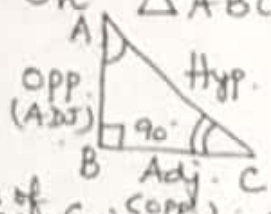 △ABC
A
Opp.
(ADJ)
Hyp.
90°
B
Adj.
C
of
(opp)